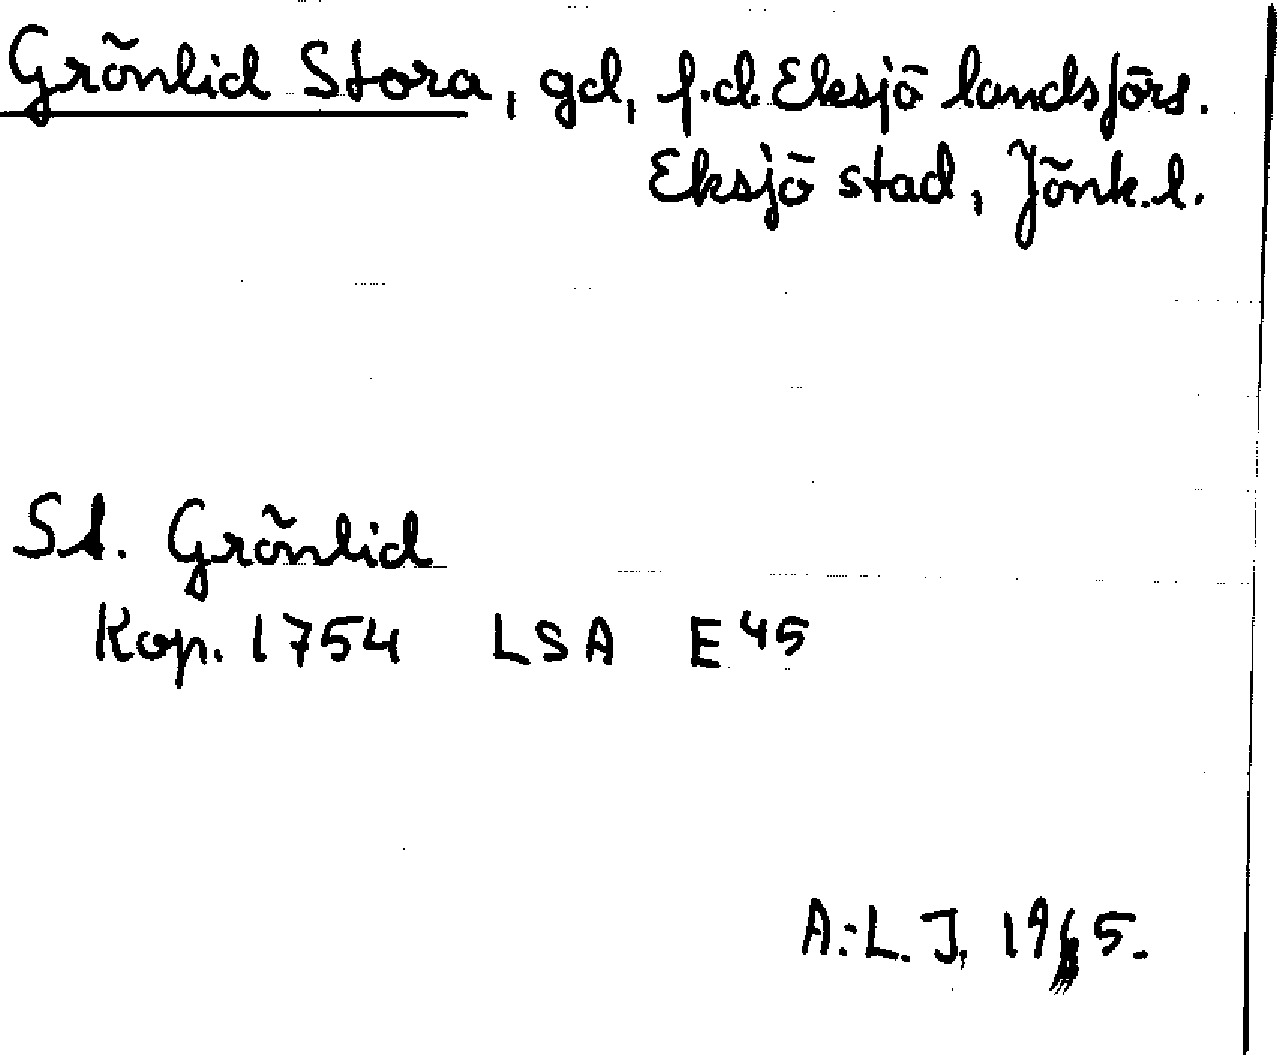 Grönlid Stora, gd, f.d. Eksjö landsförs.
Eksjö stad, Jönk.l.
St. Grönlid
Kop. 1754 LSA E 45
A:L.J. 1965.